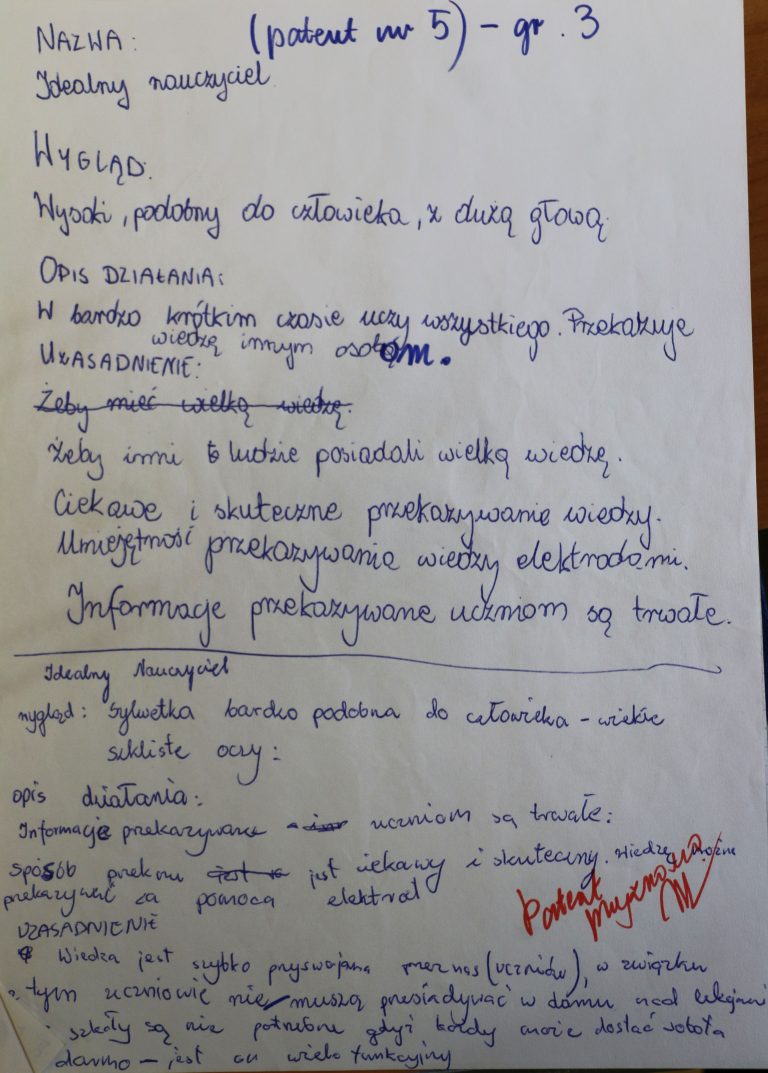 NAZWA: (patent nr 5) - gr. 3
Idealny nauczyciel
WYGLĄD:
Wysoki, podobny do człowieka, z dużą głową.
OPIS DZIAŁANIA:
W bardzo krótkim czasie uczy wszystkiego. Przekazuje
wiedzę innym osobom.
UZASADNIENIE:
Żeby mieć wielką wiedzę.
Żeby inni ludzie posiadali wielką wiedzę.
Ciekawe i skuteczne przekazywanie wiedzy.
Umiejętność przekazywania wiedzy elektrodami.
Informacje przekazywane uczniom są trwałe.
Idealny Nauczyciel
wygląd: sylwetka bardzo podobna do człowieka - wielkie
szkliste oczy:
opis działania:
Informacje przekazywane uczniom są trwałe:
sposób przekazu jest ciekawy i skuteczny. Wiedzę można
przekazywać za pomocą elektrod
Patent
przyznano
UZASADNIENIE
Wiedza jest szybko przyswajana przez nas (uczniów), w związku
z tym uczniowie nie muszą przesiadywać w domu nad lekcjami
i szkoły są nie potrzebne gdyż każdy może dostać robota
darmo - jest on wielo funkcyjny